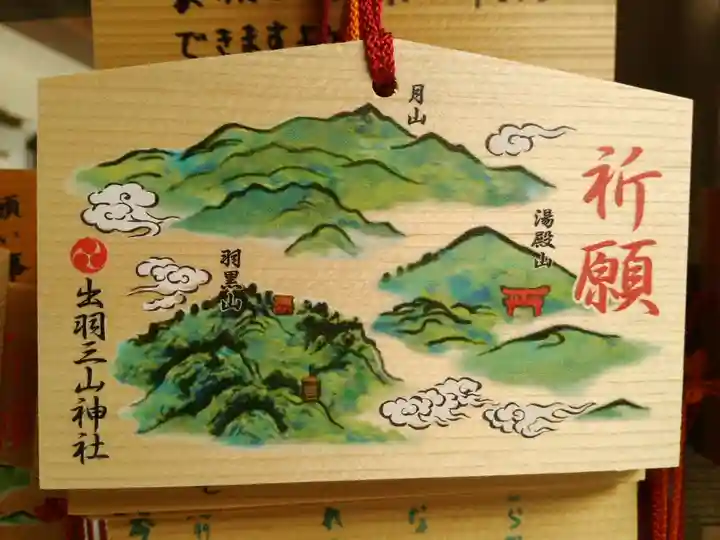 できますよ
月山
祈願
湯殿山
羽黒山
出羽三山神社
願い事